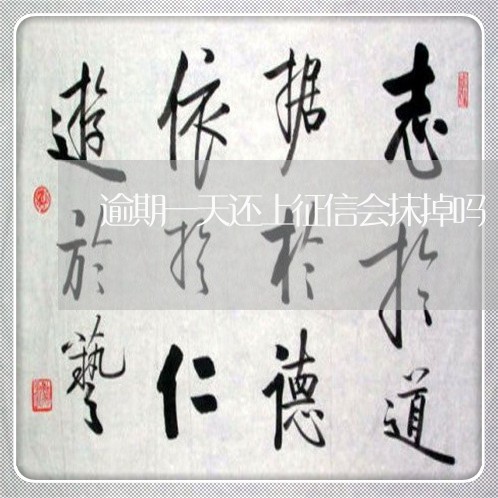 志於道
据於德
依於仁
遊於藝
逾期一天还上征信会抹掉吗